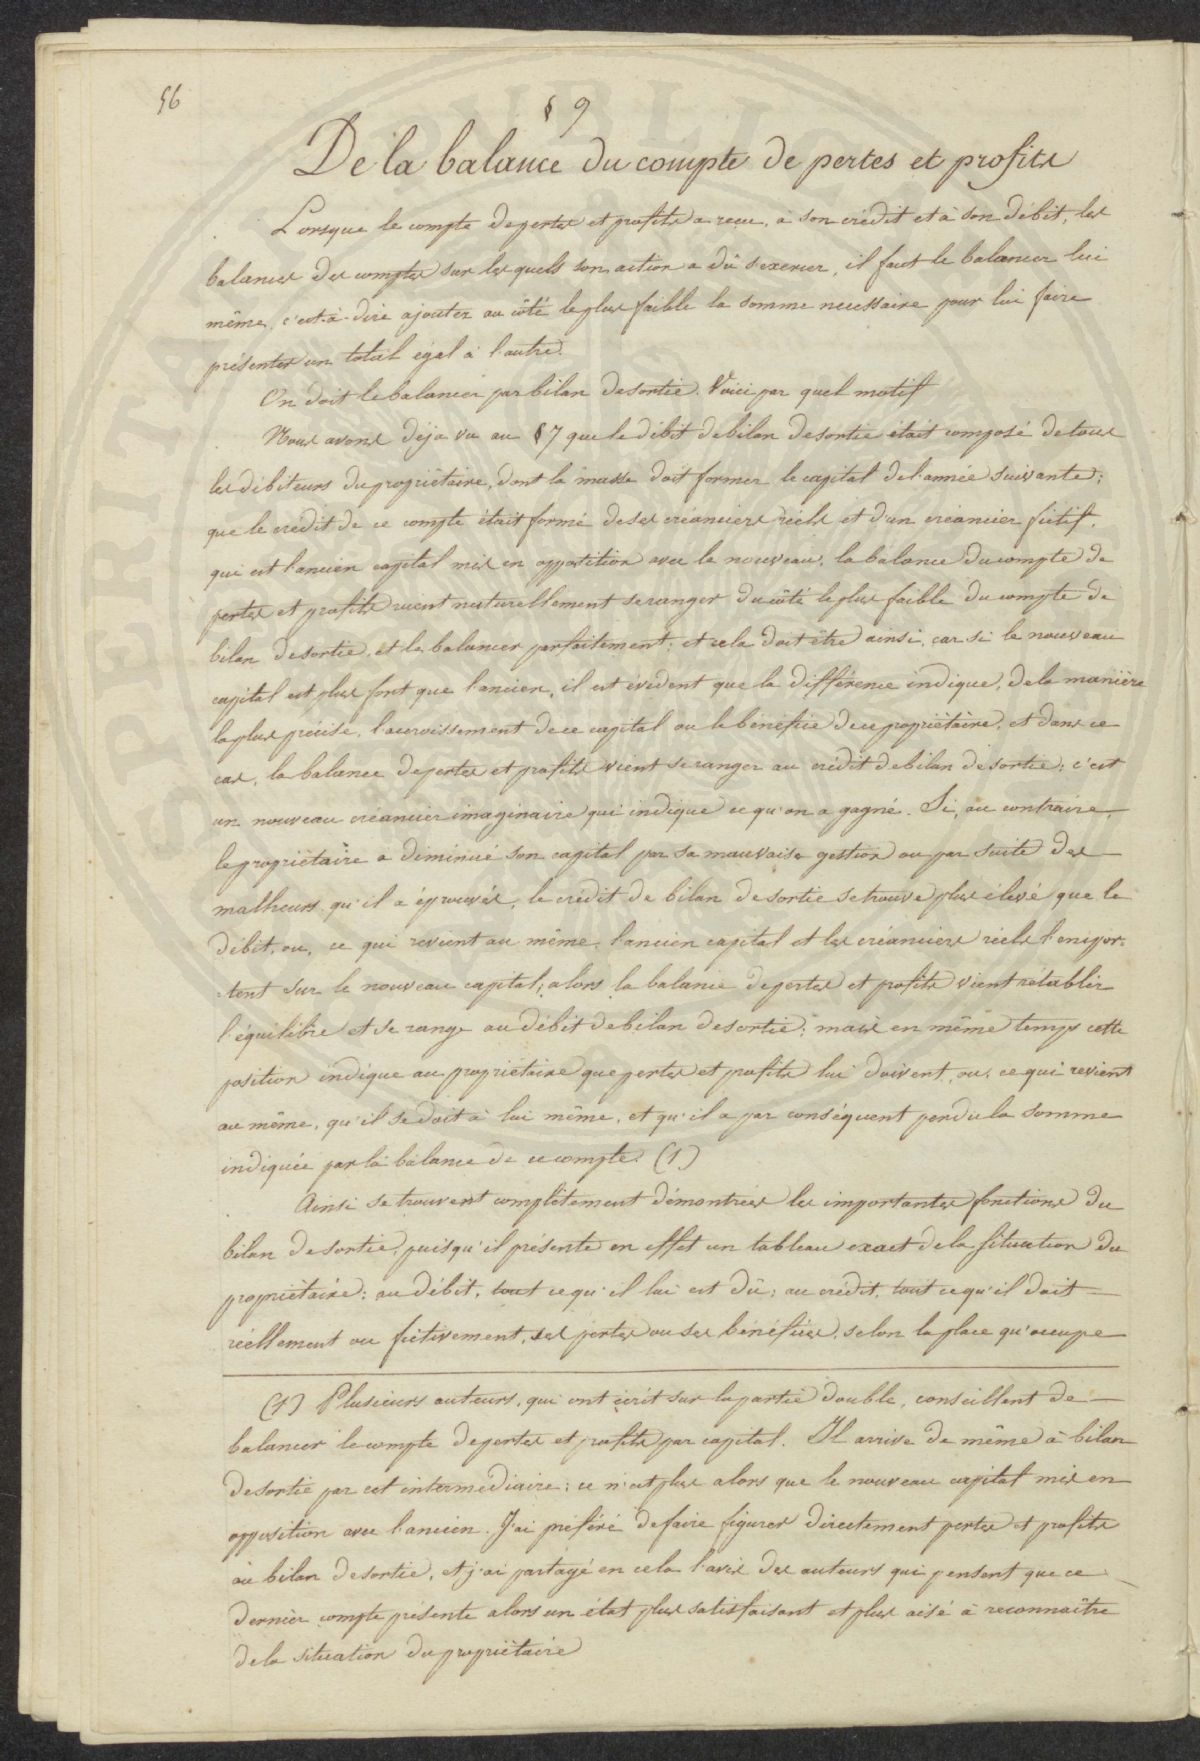 56
§ 9
De la balance du compte de pertes et profits
Lorsque le compte de pertes et profits a reçu, à son crédit et à son débit, les
balances des comptes sur lesquels son action a dû s'exercer, il faut le balancer lui
même, c'est-à-dire ajouter au côté le plus faible la somme necessaire pour lui faire
présenter un total égal à l'autre.
On doit le balancer par bilan de sortie. Voici par quel motif
Nous avons déja vu au § 7 que le débit de bilan de sortie était composé de tous
les débiteurs du propriétaire, dont la masse doit former le capital de l'année suivante;
que le crédit de ce compte était formé de ses créanciers réels et d'un créancier fictif,
qui est l'ancien capital mis en opposition avec le nouveau, la balance du compte de
pertes et profits vient naturellement se ranger du côté le plus faible du compte de
bilan de sortie, et le balancer parfaitement; et cela doit être ainsi, car si le nouveau
capital est plus fort que l'ancien, il est évident que la différence indique, de la manière
la plus précise, l'accroissement de ce capital ou le bénéfice de ce propriétaire, et dans ce
cas, la balance de pertes et profits vient se ranger au crédit de bilan de sortie; c'est
un nouveau créancier imaginaire qui indique ce qu'on a gagné. Si, au contraire,
le propriétaire a diminué son capital par sa mauvaise gestion ou par suite des
malheurs qu'il a éprouvés, le crédit de bilan de sortie se trouve plus élevé que le
débit, ou, ce qui revient au même, l'ancien capital et les créanciers réels l'empor=
=tent sur le nouveau capital; alors la balance de pertes et profits vient rétablir
l'équilibre et se range au débit de bilan de sortie; mais en même temps cette
position indique au propriétaire que pertes et profits lui doivent, ou, ce qui revient
au même, qu'il se doit à lui même, et qu'il a par conséquent perdu la somme
indiquée par la balance de ce compte. (1)
Ainsi se trouvent complètement démontrées les importantes fonctions du
bilan de sortie, puisqu'il présente en effet un tableau exact de la situation du
propriétaire: au débit, tout ce qu'il lui est dû; au crédit, tout ce qu'il doit
réellement ou fictivement, ses pertes ou ses bénéfices, selon la place qu'occupe
(1) Plusieurs auteurs, qui ont écrit sur la partie double, conseillent de
balancer le compte de pertes et profits par capital. Il arrive de même à bilan
de sortie par cet intermédiaire; ce n'est plus alors que le nouveau capital mis en
opposition avec l'ancien. J'ai préféré de faire figurer directement pertes et profits
au bilan de sortie, et j'ai partagé en cela l'avis des auteurs qui pensent que ce
dernier compte présente alors un état plus satisfaisant et plus aisé à reconnaître
de la situation du propriétaire